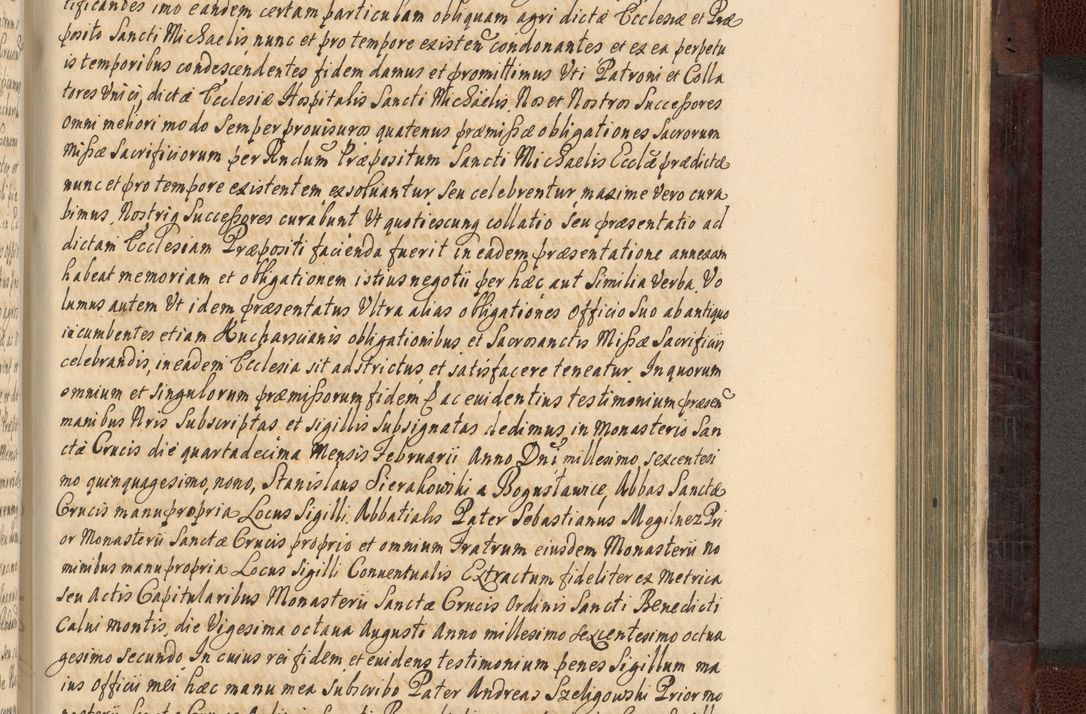 tificandes imo eandem certam particulam obliquam agri dictæ Ecclesiæ et Præ
posito Sancti Michaelis nunc et pro tempore existen condonantes et ex ea perpetu
is temporibus condescendentes fidem damus et promittimus Vti Patroni et Colla
tores Vnici, dictæ Ecclesiæ Hospitalis Sancti Michaelis. Nos et Nostros Successores
omni meliori modo Semper prouisuros quatenus præmissæ obligationes Sacrorum
Missæ Sacrificiorum per Rndum Præpositum Sancti Michaelis Ecclæ prædictæ
nunc et pro tempore existentem exsoluantur, Seu celebrentur, maxime Vero cura
bimus, Nostriq Successores curabunt Vt quotiescunq collatio Seu præsentatio ad
dictam Ecclesiam Præpositi facienda fuerit in eadem præsentatione annexam
habeat memoriam et obligationem istius negotii per hæc aut Similia Verba. Vo
lumus autem Vt idem præsentatus Vltra alias obligationes officio Suo ab antiquo
incumbentes etiam Kucharscianis obligationibus et Sacrosanctis Missæ Sacrificiis
celebrandis, in eadem Ecclesia sit adstrictus et satisfacere teneatur. In quorum
omnium et Singulorum præmissorum fidem & ac euidentius testimonium præsen
manibus Nris Subscriptas et Sigillis Supsignatas dedimus in Monasterio San
ctæ Crucis die quarta decima Mensis Februarii Anno Dni millesimo, sexcentesi
mo quinquagesimo, nono, Stanislaus Sierakowski a Bogusławice, Abbas Sanctæ
Crucis manu propria Locus Sigilli. Abbatialis Pater Sebastianus Mogilnez Pri
or Monasterii Sanctæ Crucis proprio et omnium Fratrum eiusdem Monasterii no
minibus manu propria Locus Sigilli Conuentualis Extractum fideliter ex Metrica
Seu Actis Capitularibus Monasterii Sanctæ Crucis Ordinis Sancti Benedicti
Calui montis, die Vigesima octaua Augusti Anno millesimo Sexcentesimo octua
gesimo Secundo In cuius rei fidem et euidens testimonium penes Sigillum ma
ius officii mei hæc manu mea Subscribo Pater Andreas Szeligowski Prior mo